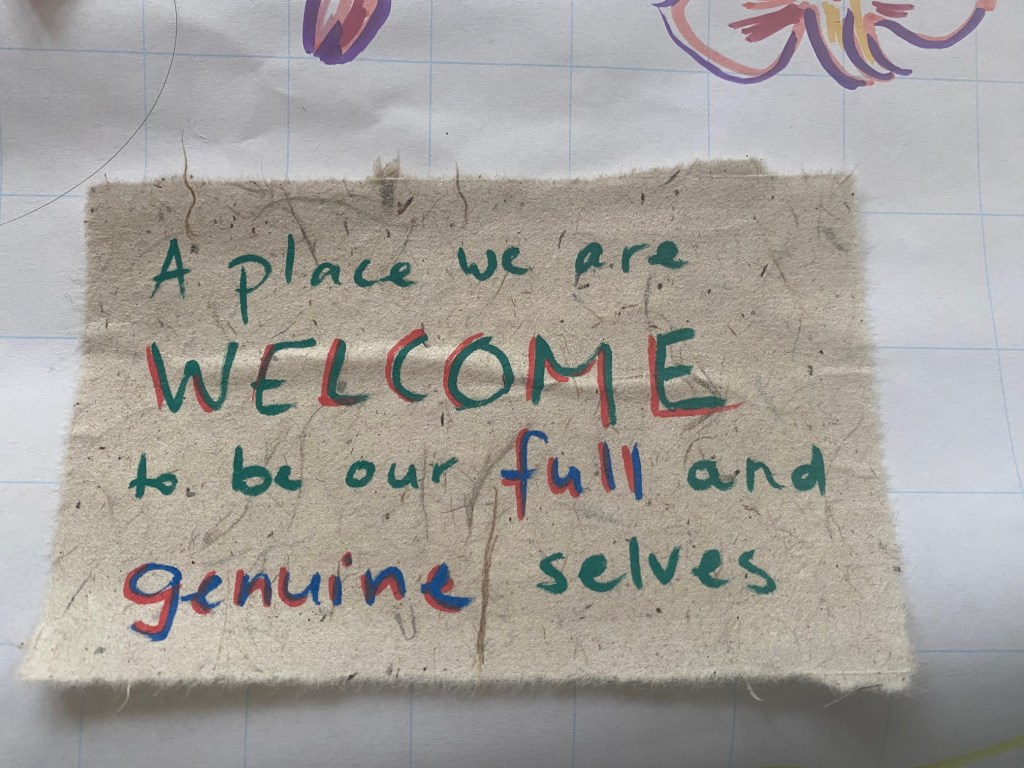 A place we are
WELCOME
to be our full and
genuine selves